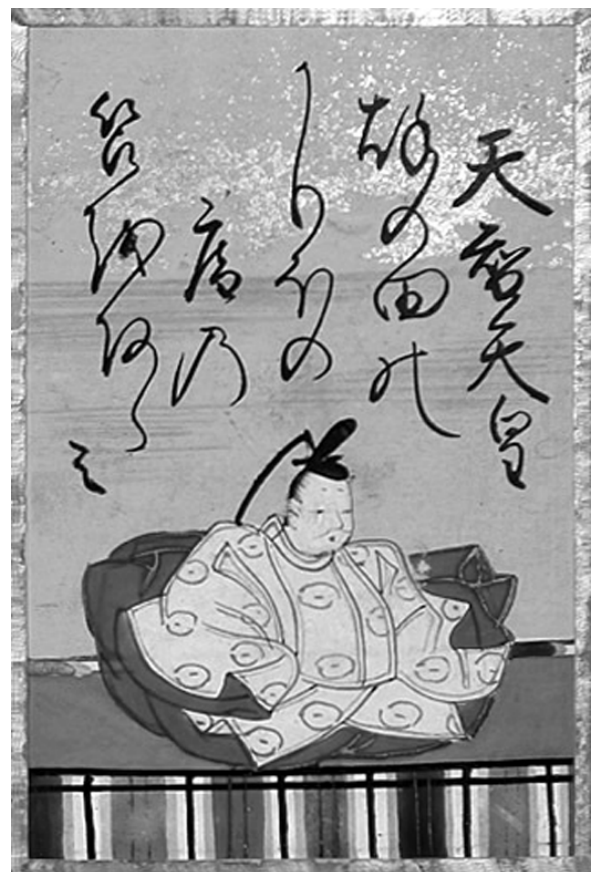 天智天皇
秋の田の
かりほの
庵乃
苫越阿ら
み